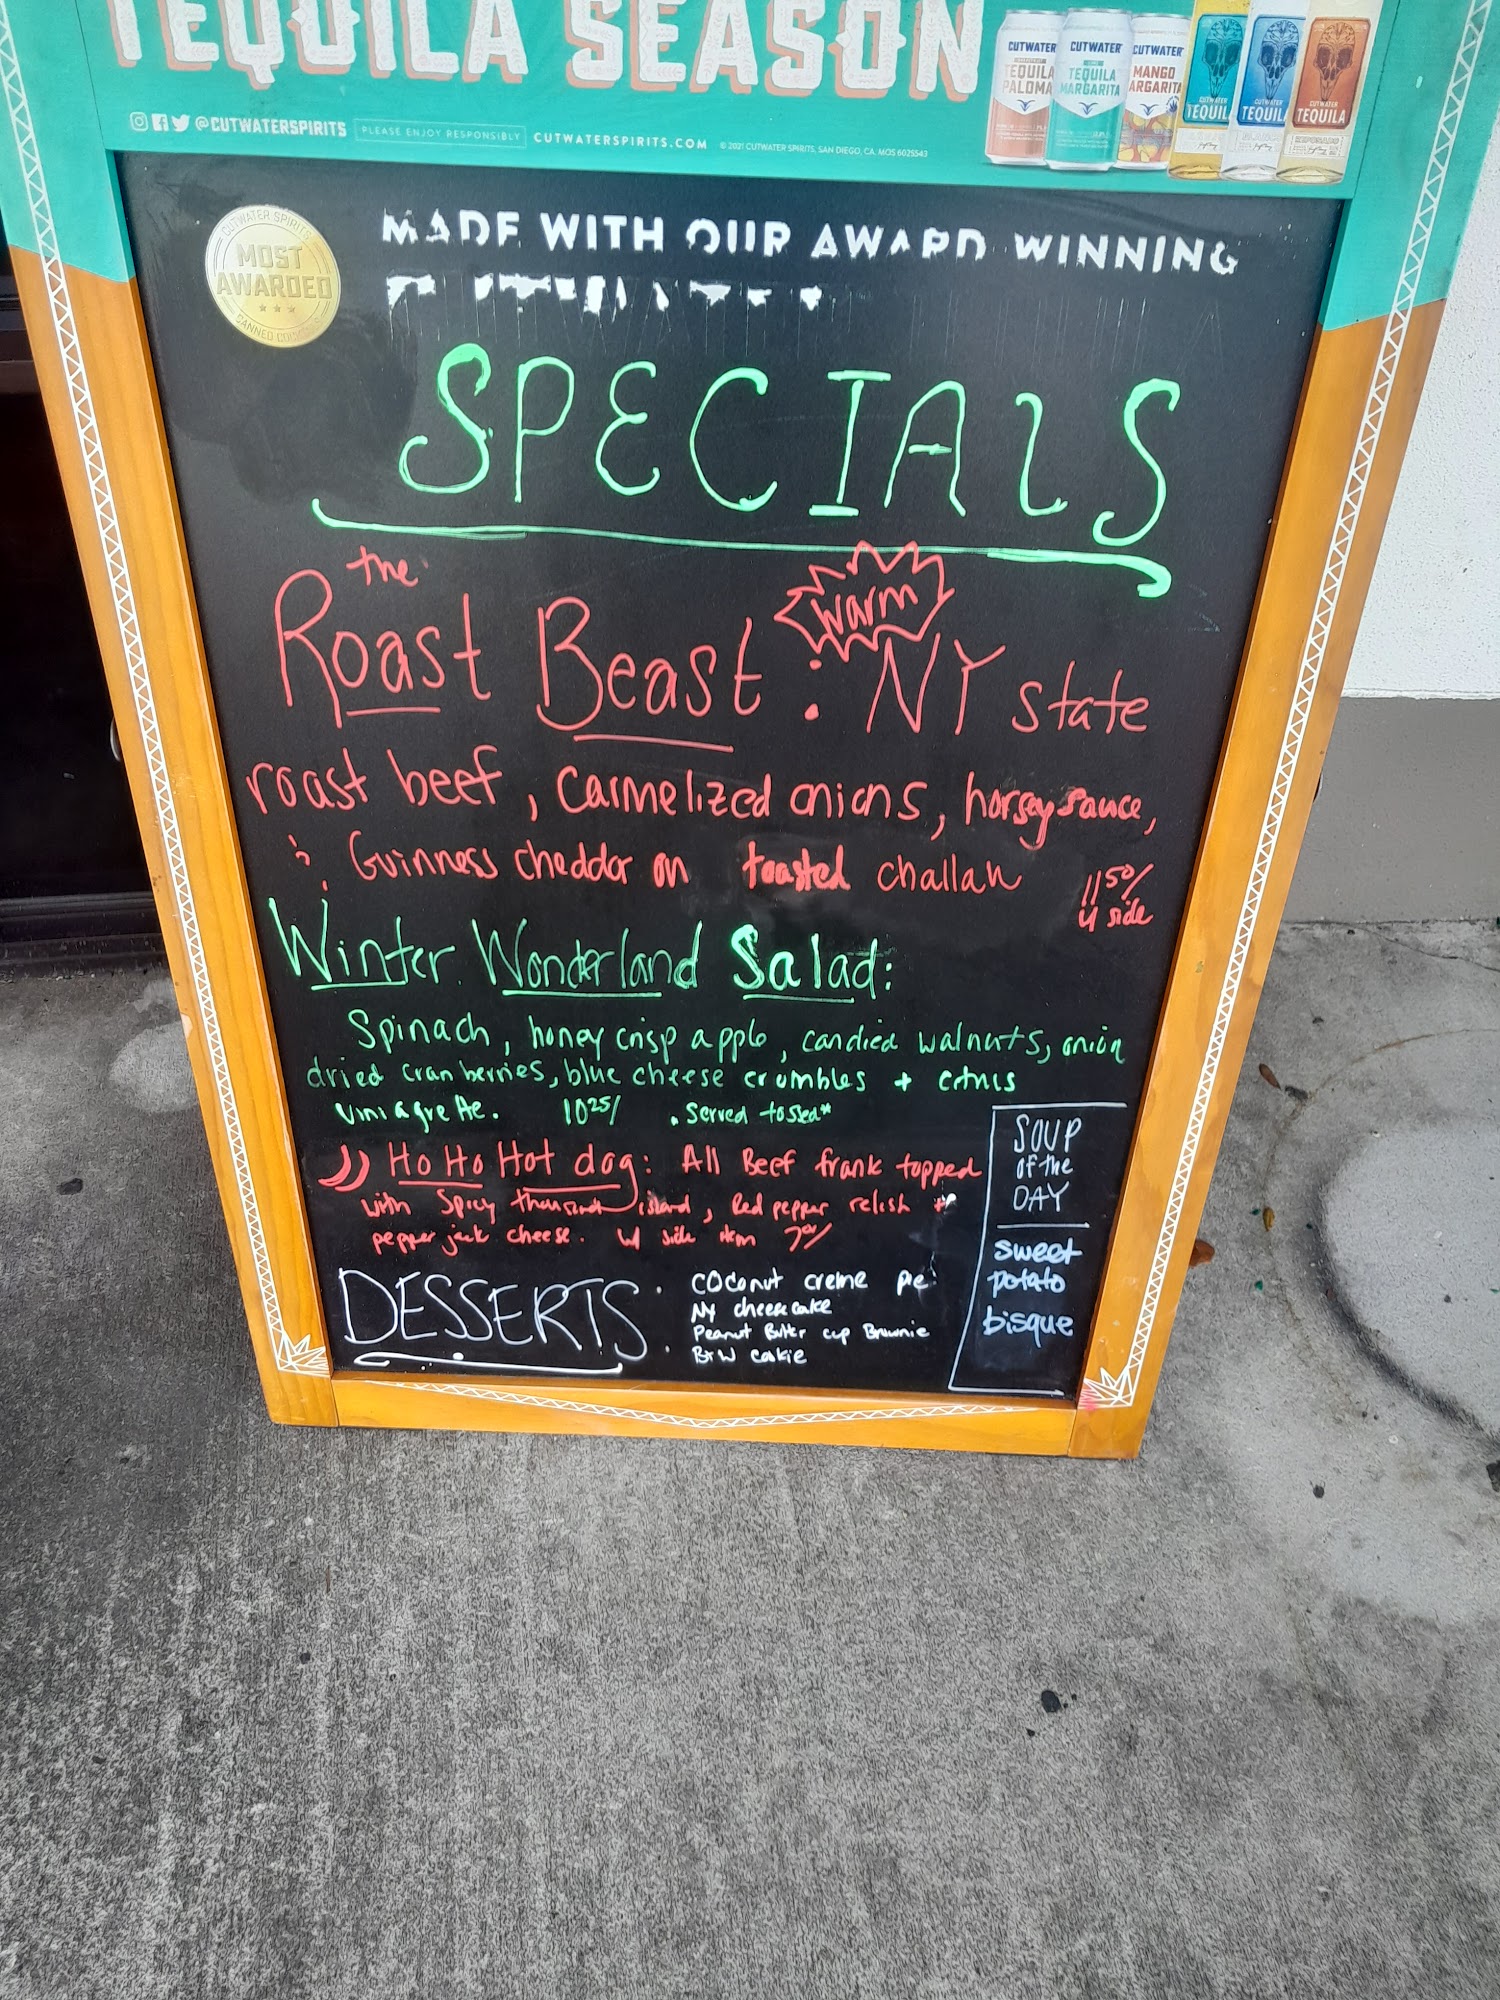 TEQUILA SEASON
@CUTWATERSPIRITS PLEASE ENJOY RESPONSIBLY CUTWATERSPIRITS.COM © 2021 CUTWATER SPIRITS, SAN DIEGO, CA. MOS 6025543
CUTWATER TEQUILA PALOMA
CUTWATER TEQUILA MARGARITA
CUTWATER MANGO MARGARITA
CUTWATER TEQUILA
CUTWATER TEQUILA
CUTWATER TEQUILA
CUTWATER SPIRITS
MOST
AWARDED
CANNED
MADE WITH OUR AWARD WINNING
SPECIALS
the
Roast Beast: warm NY state
roast beef, carmelized onions, horsey sauce,
& Guinness cheddar on toasted challah 11 50/
w side
Winter Wonderland Salad:
Spinach, honey crisp apple, candied walnuts, onion
dried cranberries, blue cheese crumbles + citrus
viniagrette. 10 25/ . Served tossed*
Ho Ho Hot dog: All Beef frank topped
with spicy thousand island, Red pepper relish +
pepper jack cheese. w side item
DESSERTS:
Coconut creme pie
NY cheesecake
Peanut Butter cup Brownie
B+W cookie
SOUP
of the
DAY
sweet
potato
bisque